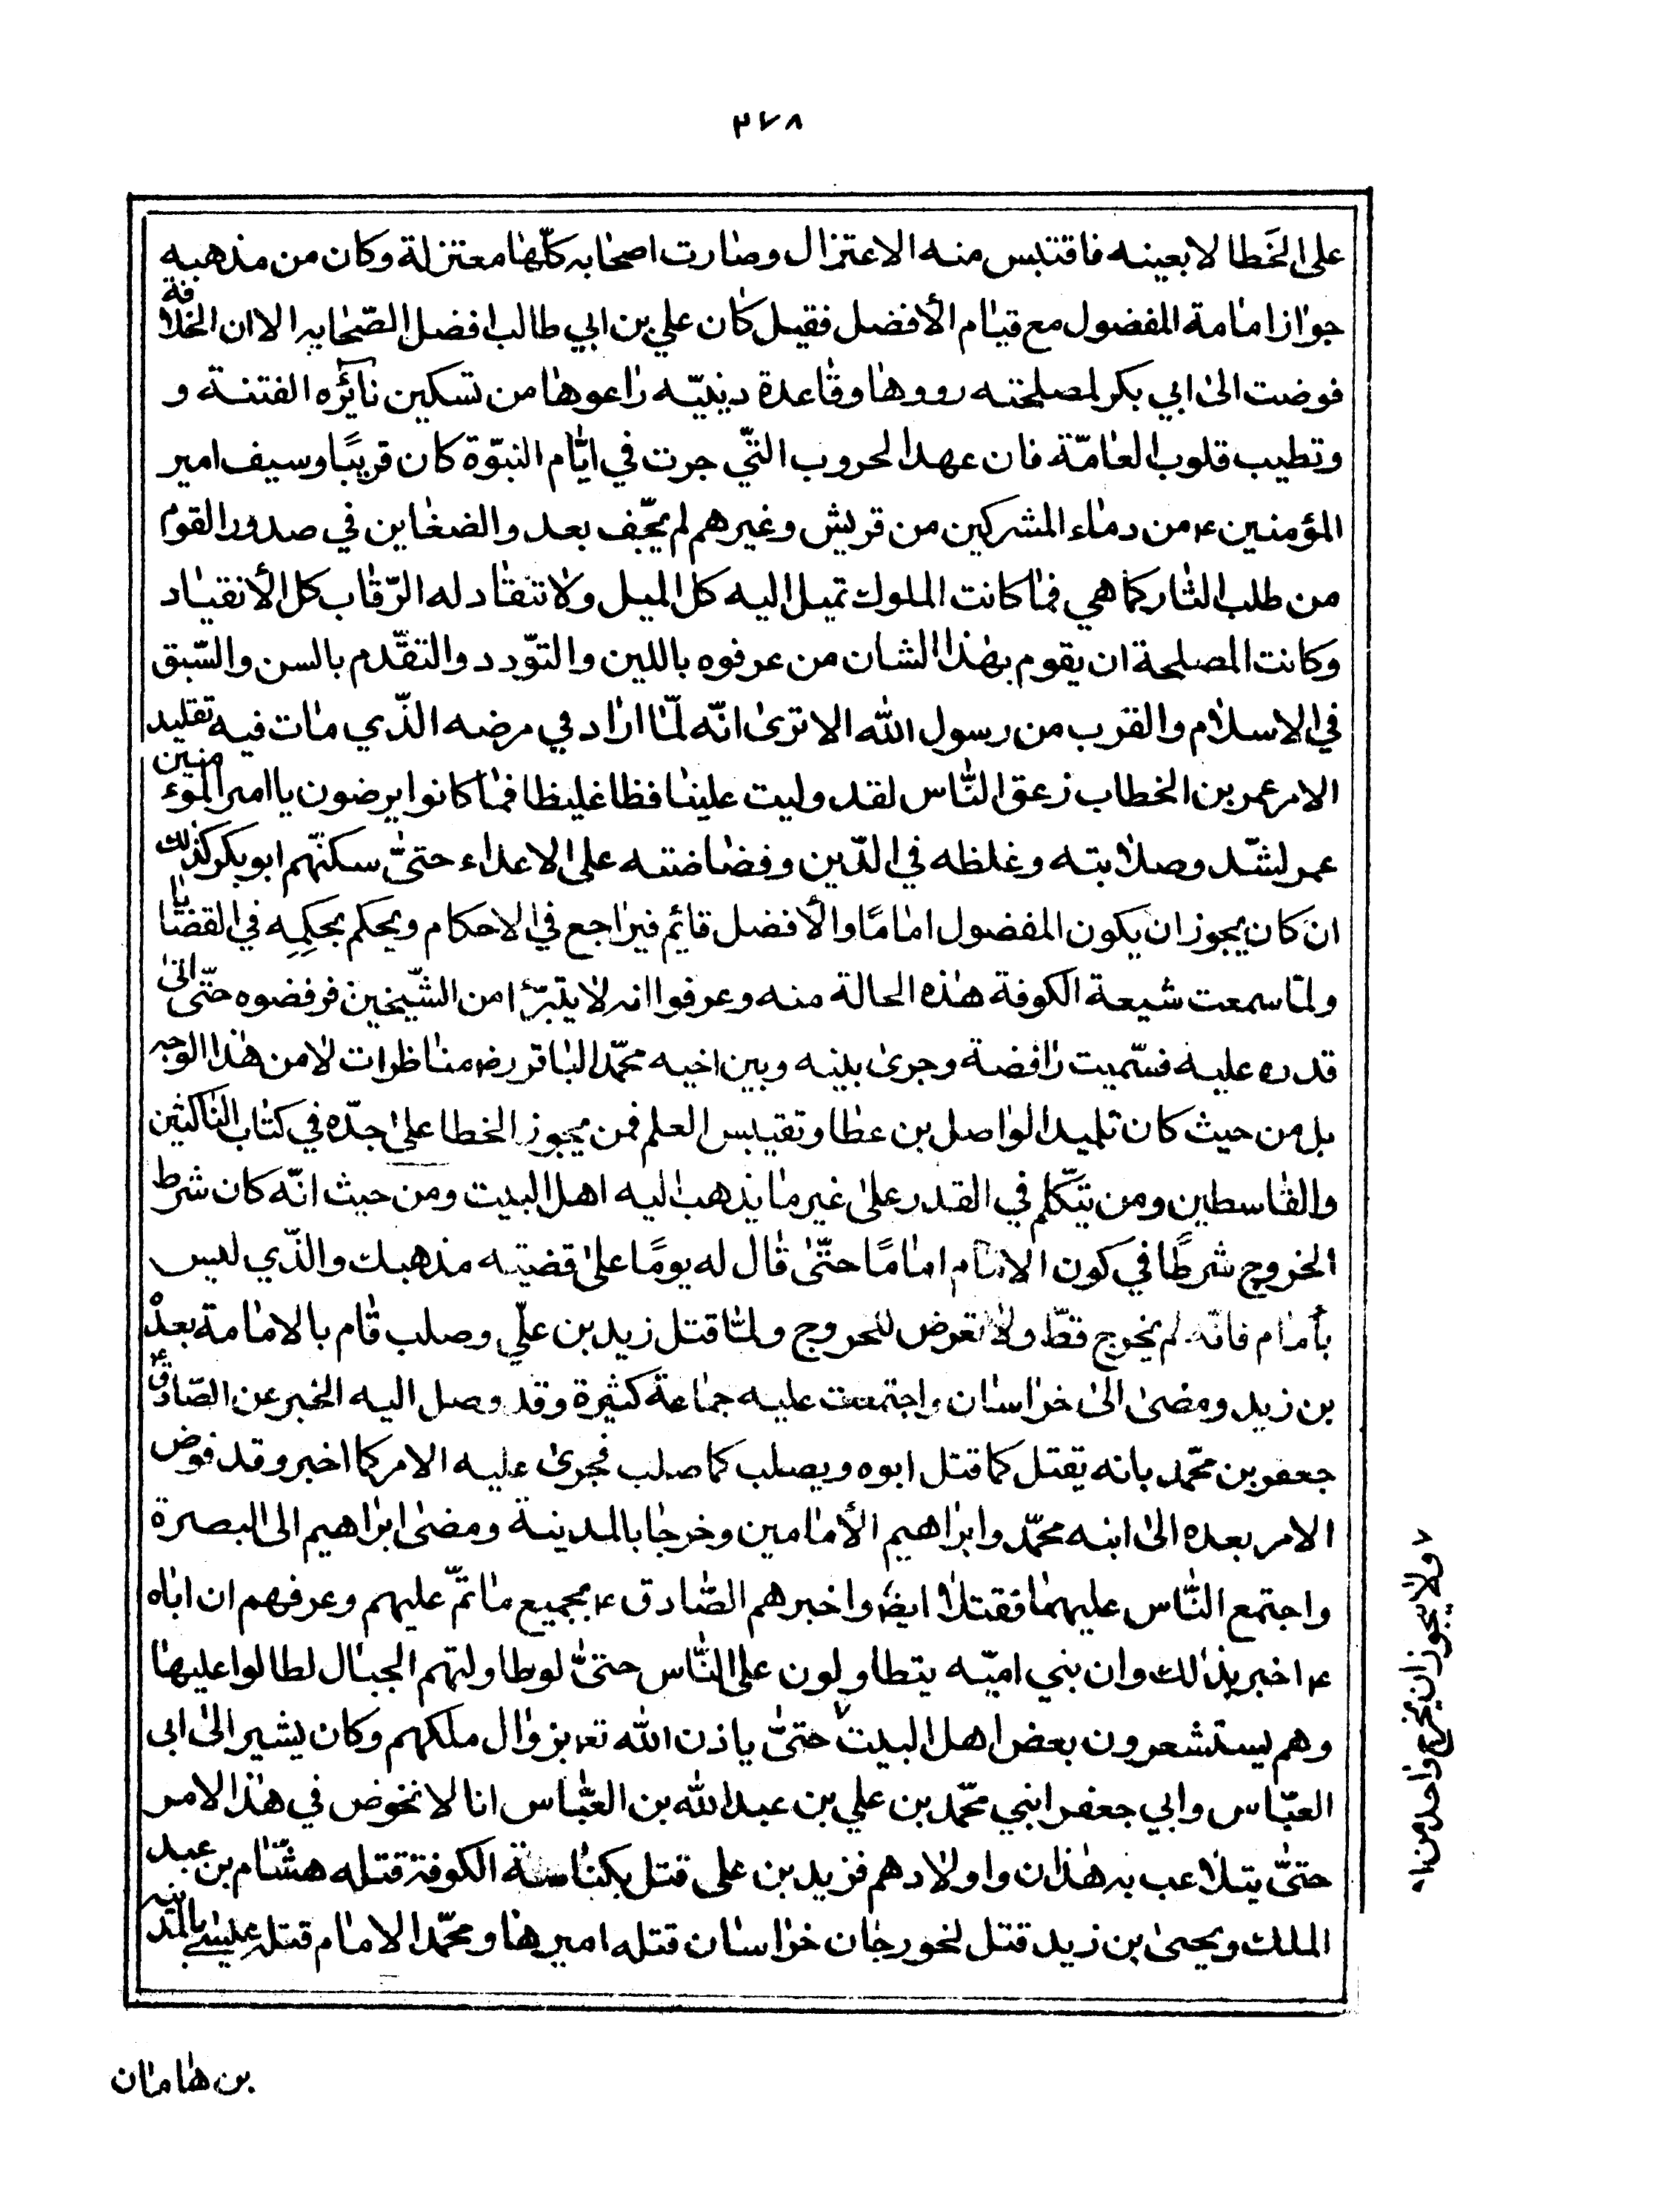 ٣٧٨
على الخَطا لا بعينه فاقتبس منه الاعتزال وصارت اصحابه كلّها معتزلة وكان من مذهبه
جواز امامة المفضول مع قيام الأفضل فقيل كان علي بن ابي طالب افضل الصّحابه الا ان الخلافة
فوضت الى ابي بكر لمصلحته رووها وقاعدة دينيّه راعوها من تسكين نائره الفتنة و
وتطيب قلوب العامّة فان عهد الحروب التّي جرت في ايّام النبوّة كان قريبًا وسيف امير
المؤمنين ع من دماء المشركين من قريش وغيرهم لم يجّف بعد والضغاين في صدور القوم
من طلب الثار كما هي فما كانت الملوك تميل اليه كل الميل ولا تنقاد له الرّقاب كل الأنقياد
وكانت المصلحة ان يقوم بهذا الشان من عرفوه باللين والتوّدد والتقدّم بالسن والسّبق
في الاسلام والقرب من رسول الله الا ترى انّه لمّا اراد في مرضه الذّي مات فيه تقليد
الامر عمر بن الخطاب زعق النّاس لقد وليت علينا فظا غليظا فما كانوا يرضون يا امير الموءمنين
عمر لشّد وصلابته وغلظه في الدّين وفضاضته على الاعداء حتىّ سكنّهم ابو بكر كذلك
ان كان يجوز ان يكون المفضول امامًا والأفضل قائم فيراجع في الاحكام ويحكم بحكِمِه في القضايا
ولمّا سمعت شيعة الكوفة هذه الحالة منه وعرفوا انه لا يتبرّأ من الشّيخين فرفضوه حتّى اتى
قدره عليه فسّميت رافضة وجرى بينه وبين اخيه محمّد الباقر رض مناظرات لا من هذا الوجه
بل من حيث كان تلميد الواصل بن عطا وتقيبس العلم فمن يجوز الخطا على جدّه في كتاب الناكثين
والقاسطين ومن يتّكلم في القدر على غير ما يذهب اليه اهل البيت ومن حيث انّه كان شرط
الخروج شرطًا في كون الامام امامًا حتّى قال له يومًا على قضيته مذهبك والذّي ليس
بأمام فانّه لم يخرج قطّ ولا تعرض للخروج ولمّا قتل زيد بن علّي وصلب قام بالامامة بعدْ
بن زيد ومضى الى خراسان واجتمعت عليه جماعة كثيرة وقد وصل اليه الخبر عن الصّادق ع
جعفر بن محمّد بانه يقتل كما قتل ابوه ويصلب كما صلب فجرى عليه الامر كما اخبر وقد فوض
الامر بعده الى ابنه محمّد وابراهيم الأمامين وخرجا بالمدينة ومضى ابراهيم الى البصرة
واجتمع النّاس عليهما فقتلا ايضا واخبرهم الصّادق ع بجميع ما تمّ عليهم وعرفهم ان اباه
ع اخبر بذلك وان بني اميّه يتطاولون على النّاس حتىّ لو طاولتهم الجبال لطالوا عليها
وهم يستشعرون بعض اهل البيت حتىّ ياذن الله تع بزوال ملكهم وكان يشير الى ابى
العبّاس وابي جعفر ابني محمّد بن علي بن عبد الله بن العبّاس انا لا نخوض في هذا الامر
حتىّ يتلاعب به هذان واولادهم فزيد بن على قتل بكناسة الكوفة قتله هشّام بن عبد
الملك ويحيى بن زيد قتل لخورجان خراسان قتله اميرها ومحمّد الامام قتله عيسى بالمدينه
ولا يجوز ان يخرج واحد من
بن هامان